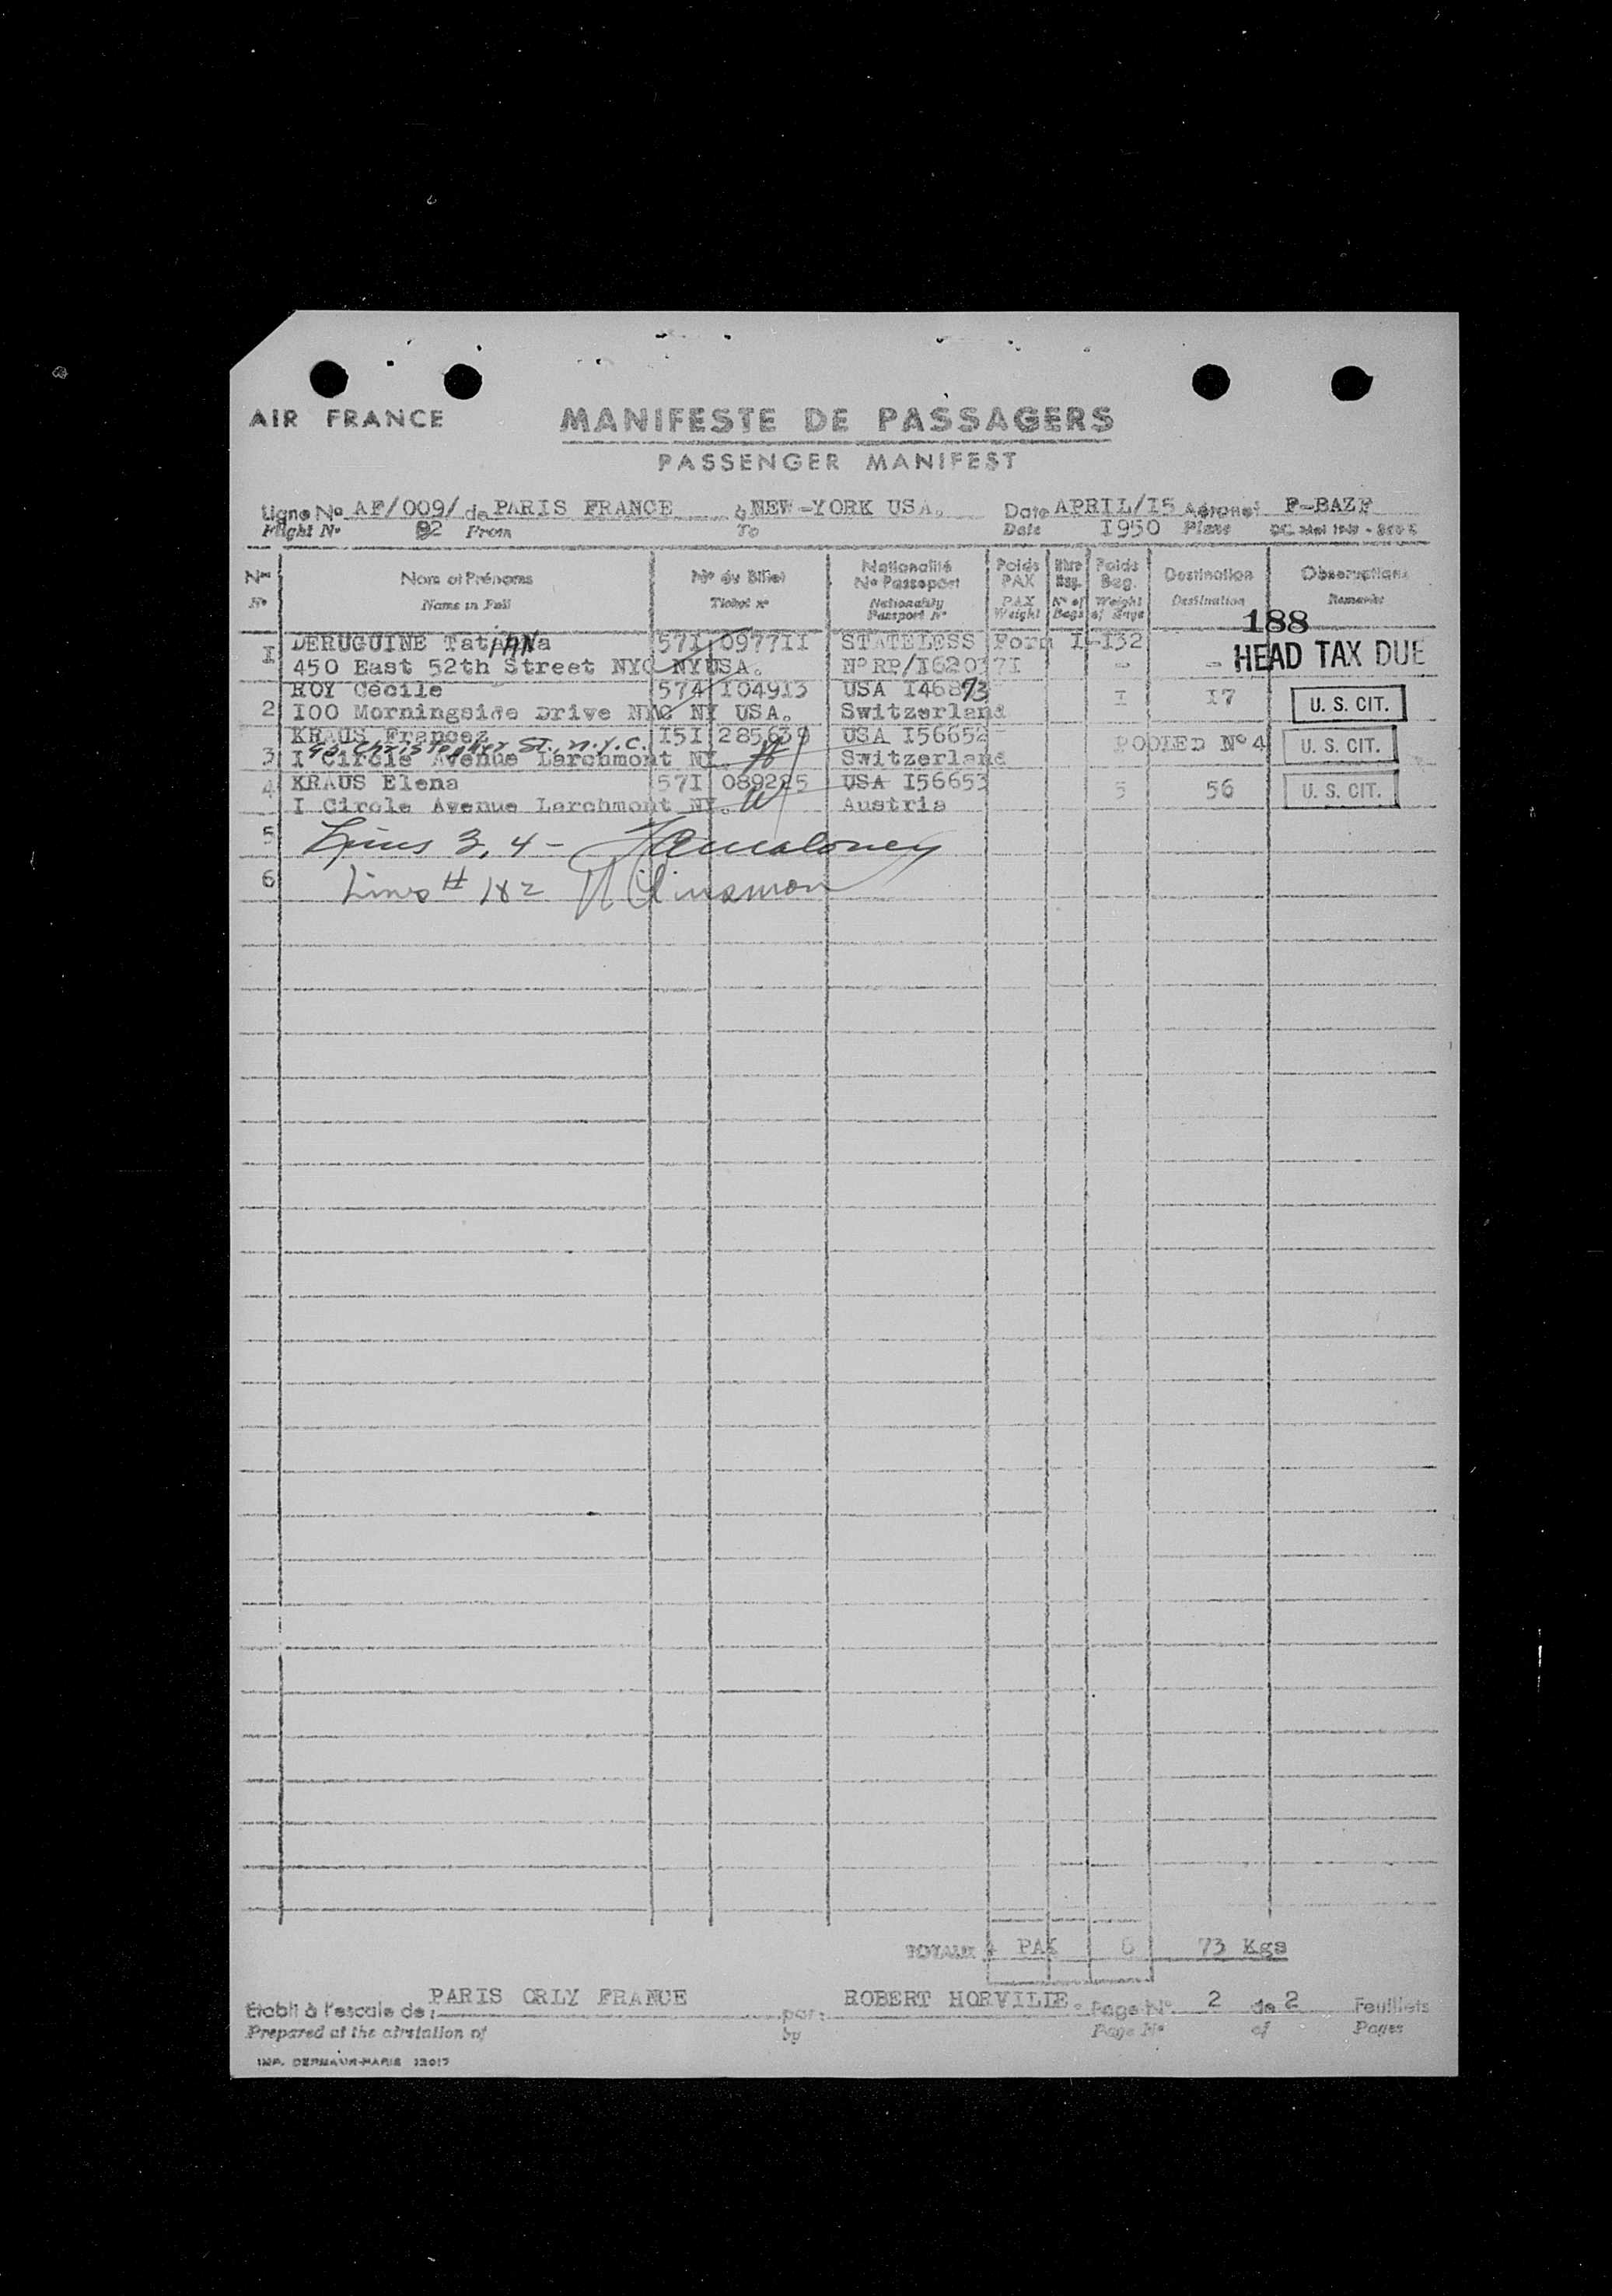 AIR FRANCE
MANIFESTE DE PASSAGERS
PASSENGER MANIFEST
Ligne No AF/009/ de PARIS FRANCE à NEW-YORK USA. Date APRIL/I5 Aéronef F-BAZF
Flight No 92 From To Date I950 Plane
Nos Nom et Prénoms No du Billet Nationalité No Passeport Poids PAX Nbre Bag. Poids Bag. Destination Observations
No Name in Full Ticket No Nationality Passport No PAX Weight No of Bags Weight of Bags Destination Remarks
188
I DERUGUINE Tat IANa 57I 0977II STATELESS Form I-I32
450 East 52th Street NYC NYUSA. No RP/I62037I - - HEAD TAX DUE
ROY Cécile 574 I049I3 USA I46873 I I7 U. S. CIT.
2 I00 Morningside Drive NYC NY USA. Switzerland
KRAUS Frances I5I 285639 USA I56652 POOLED No 4 U. S. CIT.
95 Christopher St., N.Y.C.
3 I Circle Avenue Larchmont NY. Switzerland
4 KRAUS Elena 57I 089285 USA I56653 5 56 U. S. CIT.
I Circle Avenue Larchmont NY. Austria
5 Lines 3, 4 - Maloney
6 Lines # 1&2
TOTAUX 4 PAX 6 73 Kgs
Etabli à l'escale de: PARIS ORLY FRANCE par: ROBERT HORVILLE. Page No. 2 de 2 Feuillets
Prepared at the airstation of by Page No of Pages
IMP. DERMAUX-PARIS 13017